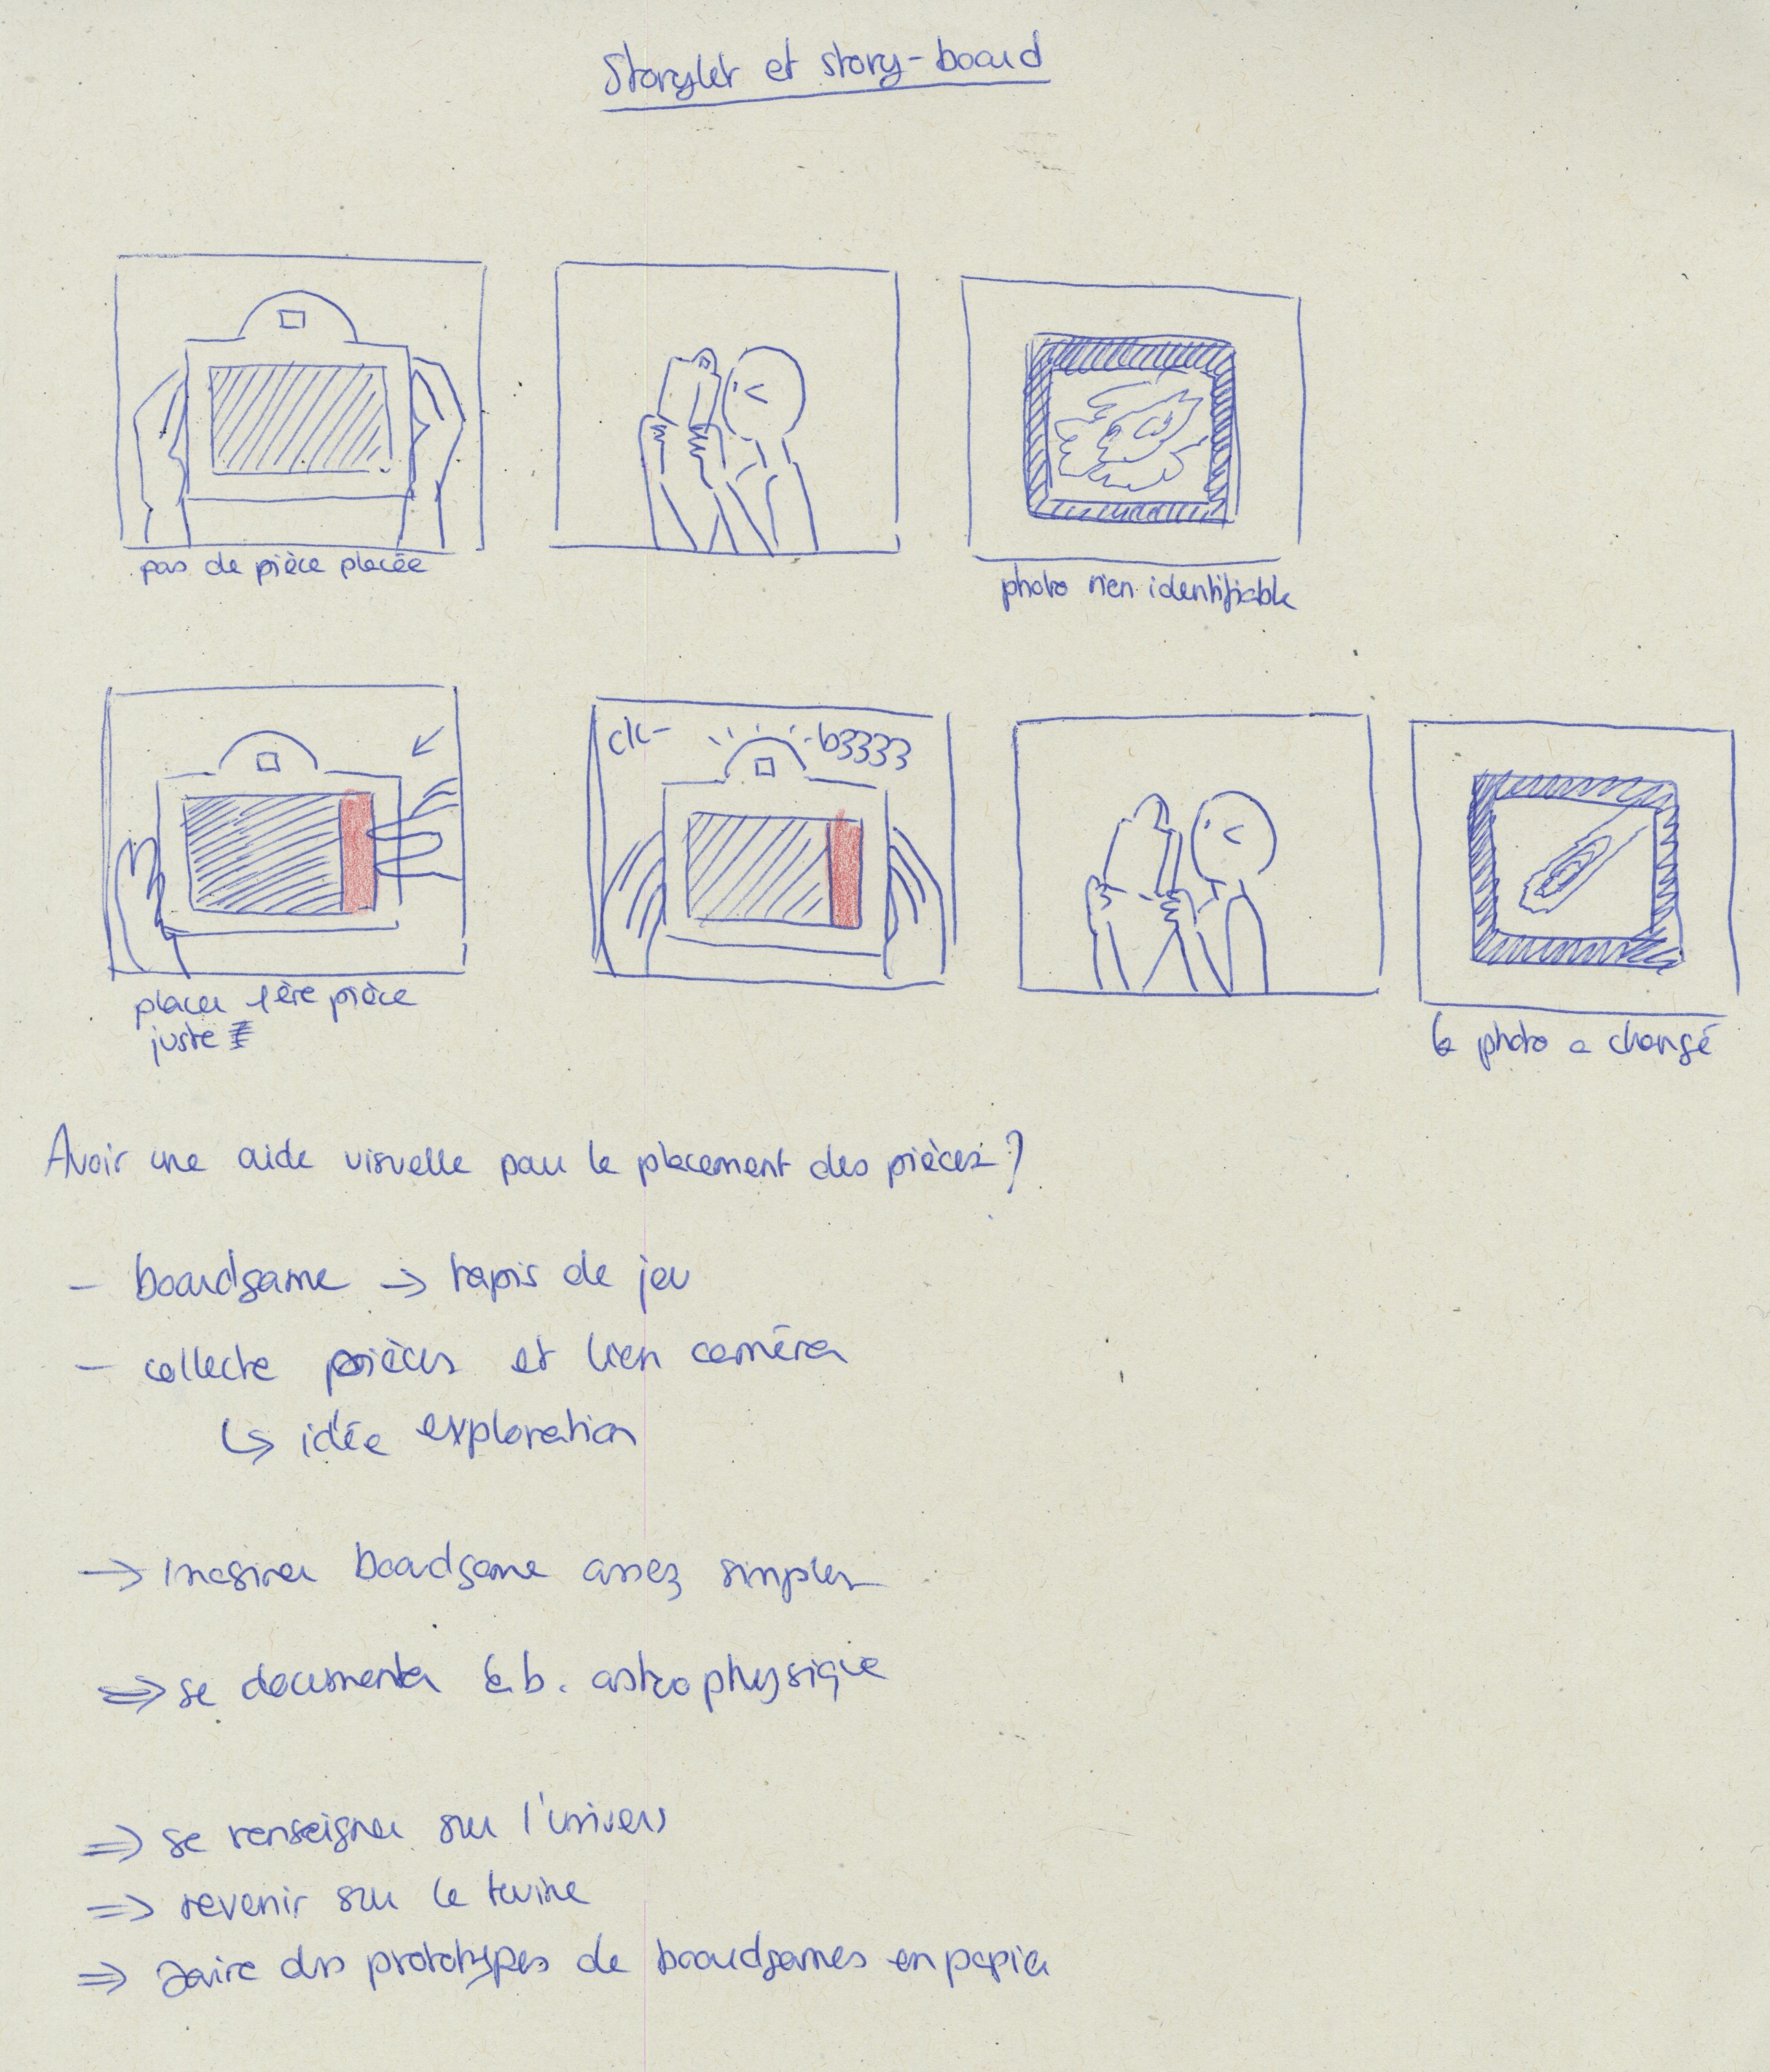 Storylet et story-board
pas de pièce placée
photo rien identifiable
clc- -b3333
placer 1ère pièce
juste
la photo a changé
Avoir une aide visuelle pour le placement des pièces?
- boardgame → tapis de jeu
- collecte pièces et lien caméra
↳ idée exploration
→ imaginer boardgame assez simples
⇒ se documenter astrophysique
⇒ se renseigner sur l'univers
⇒ revenir sur le twine
⇒ faire des prototypes de boardgames en papier